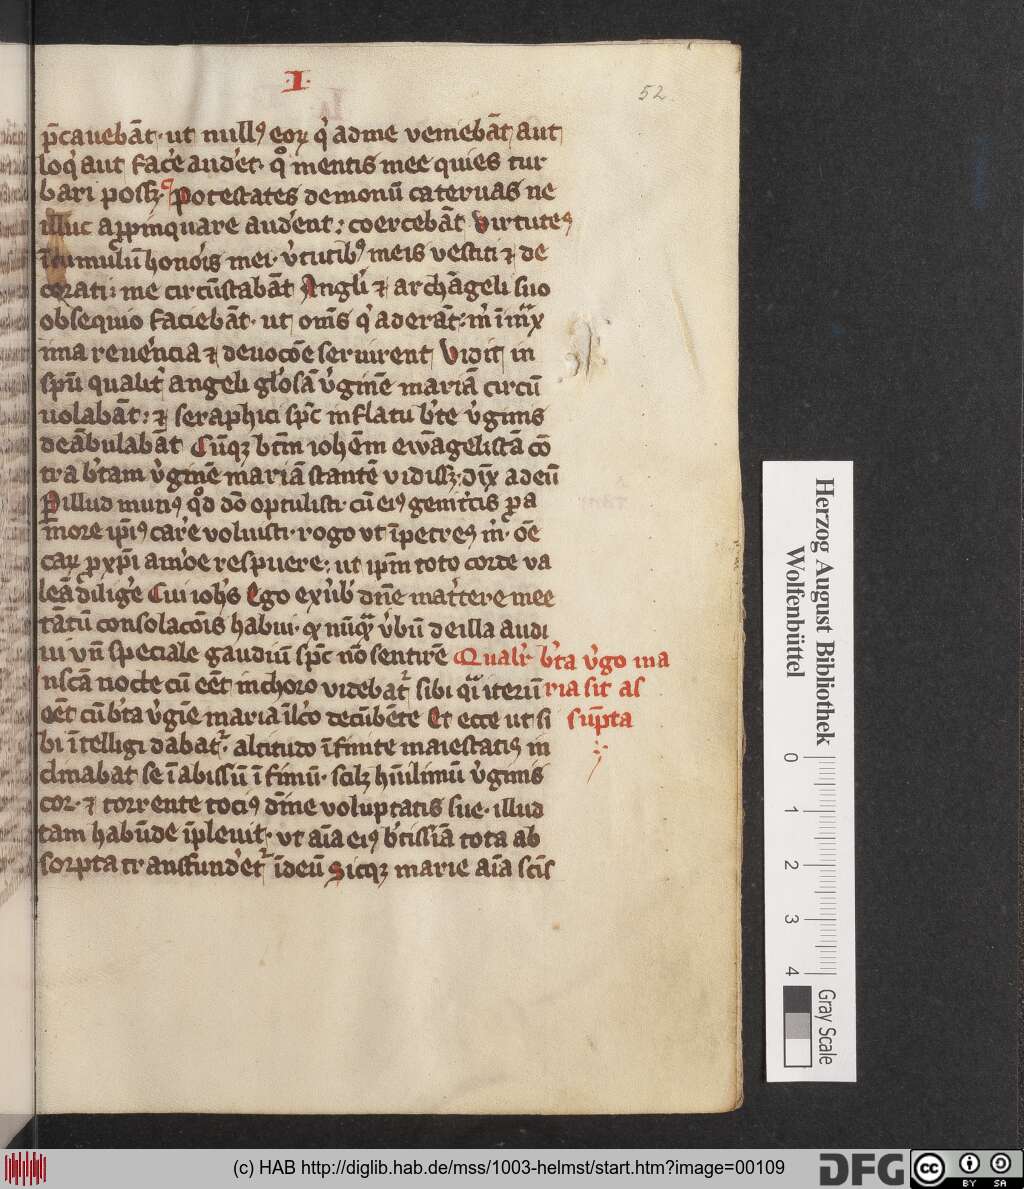 ·I·
52
p̄cauebāt· ut null⁹ eoꝝ q̇ ad me veniebāt aut
loq̇ aut face̓ aude̓t· qͦ mentis mee quies tur
bari possꝫ· Potestates demonū cateruas ne
illuc app̱inquare aude̓nt: coercebāt Virtutes
ī cumulū hono̓is mei· v̓tutib⁹ meis vestiti ⁊ de
corati: me circūstabāt Angli̓ ⁊ archāgeli suo
obsequio faciebāt· ut om̄s q̇ aderāt: m̓ ī mͣx
ima reue̓ncia ⁊ deuocōe seruirent Vidit in
spū qualit̓ angeli glo̓sā v̓ginē mariā circū
uolabāt: ⁊ seraphici spc̄ in flatu bt̓e v̓ginis
deābulabāt Cūqꝫ btm̄ iohēm ewāgelistā cō
tra bt̓am v̓ginē mariā stantē vidissꝫ· dix̄ ad eū
Ꝑ illud mun⁹ qͦd dō optulisti· cū ei⁹ genit̓cis ꝓ a
more ip̄i⁹ care̓ voluisti· rogo vt īpetres m̓· oē
caꝝ ꝓ xp̄i amo̓e respuere: ut ip̄m toto corde va
leā dilige̓ Cui ioh̓s Ego ex v̓b dn̄e mat̓tere mee
tātū consolacōis habui· ꝙ nūqͣ v̓bū de illa audi
ui vn̄ speciale gaudiū spc̄ nō sentirē Qualr̓ bt̓a v̓go ma
ria sit as
sūpta
nscā nocte cū eēt in choro videbat̓ sibi qͣi iterū
eēt cū bt̓a v̓gīe maria ī lc̓o decūbēte Et ecce ut si
bi ītelligi dabat̓· altitudo īfinite maiestatis in
clinabat se ī abissū īfimū· sclꝫ hūilimū v̓ginis
cor· ⁊ torrente toci⁹ dīne voluptatis sue· illud
tam habūde īpleuit· vt aīa ei⁹ bt̓issīa tota ab
sorpta transfunde̓t̓ ī deū Sicqꝫ marie aīa scīs
Herzog August Bibliothek
Wolfenbüttel
0 1 2 3 4
Gray Scale
(c) HAB http://diglib.hab.de/mss/1003-helmst/start.htm?image=00109
DFG
cc BY SA